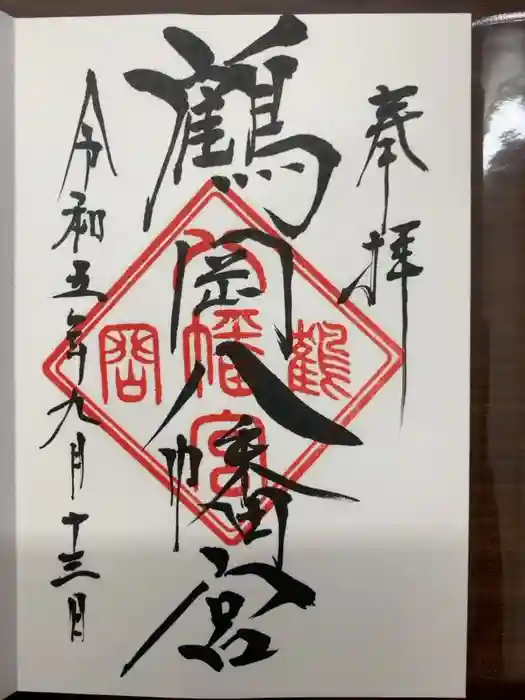 奉拝
鶴岡八幡宮
鶴
八幡宮
岡
令和五年九月十三日